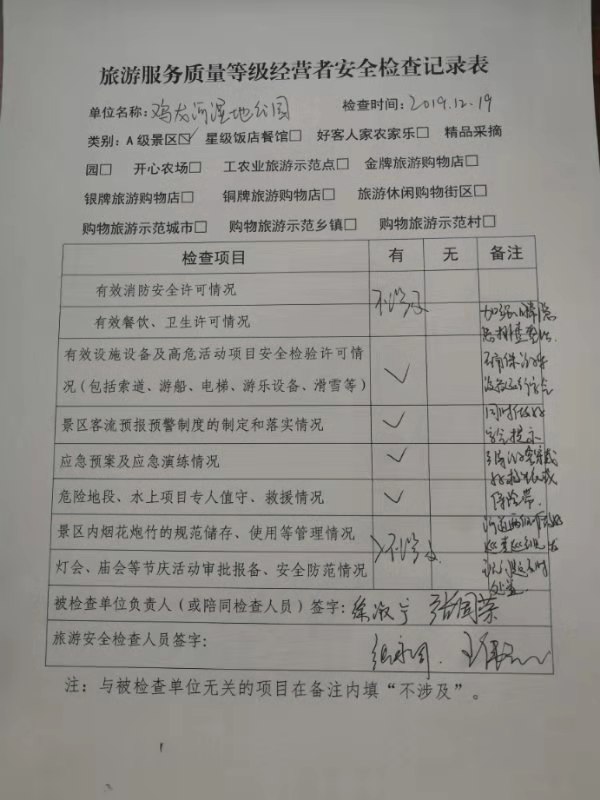 旅游服务质量等级经营者安全检查记录表
单位名称:鸡龙河湿地公园 检查时间:2019.12.19
类别:A级景区☑ 星级饭店餐馆□ 好客人家农家乐□ 精品采摘
园□ 开心农场□ 工农业旅游示范点□ 金牌旅游购物店□
银牌旅游购物店□ 铜牌旅游购物店□ 旅游休闲购物街区□
购物旅游示范城市□ 购物旅游示范乡镇□ 购物旅游示范村□
检查项目 有 无 备注
有效消防安全许可情况
不涉及
有效餐饮、卫生许可情况
有效设施设备及高危活动项目安全检验许可情
况(包括索道、游船、电梯、游乐设备、滑雪等) ✓
景区客流预报预警制度的制定和落实情况 ✓
应急预案及应急演练情况 ✓
危险地段、水上项目专人值守、救援情况 ✓
景区内烟花炮竹的规范储存、使用等管理情况
不涉及
灯会、庙会等节庆活动审批报备、安全防范情况
加强
隐
患排查整治
确保
同时做好
安全提示
被检查单位负责人(或陪同检查人员)签字:
旅游安全检查人员签字:
注:与被检查单位无关的项目在备注内填“不涉及”。